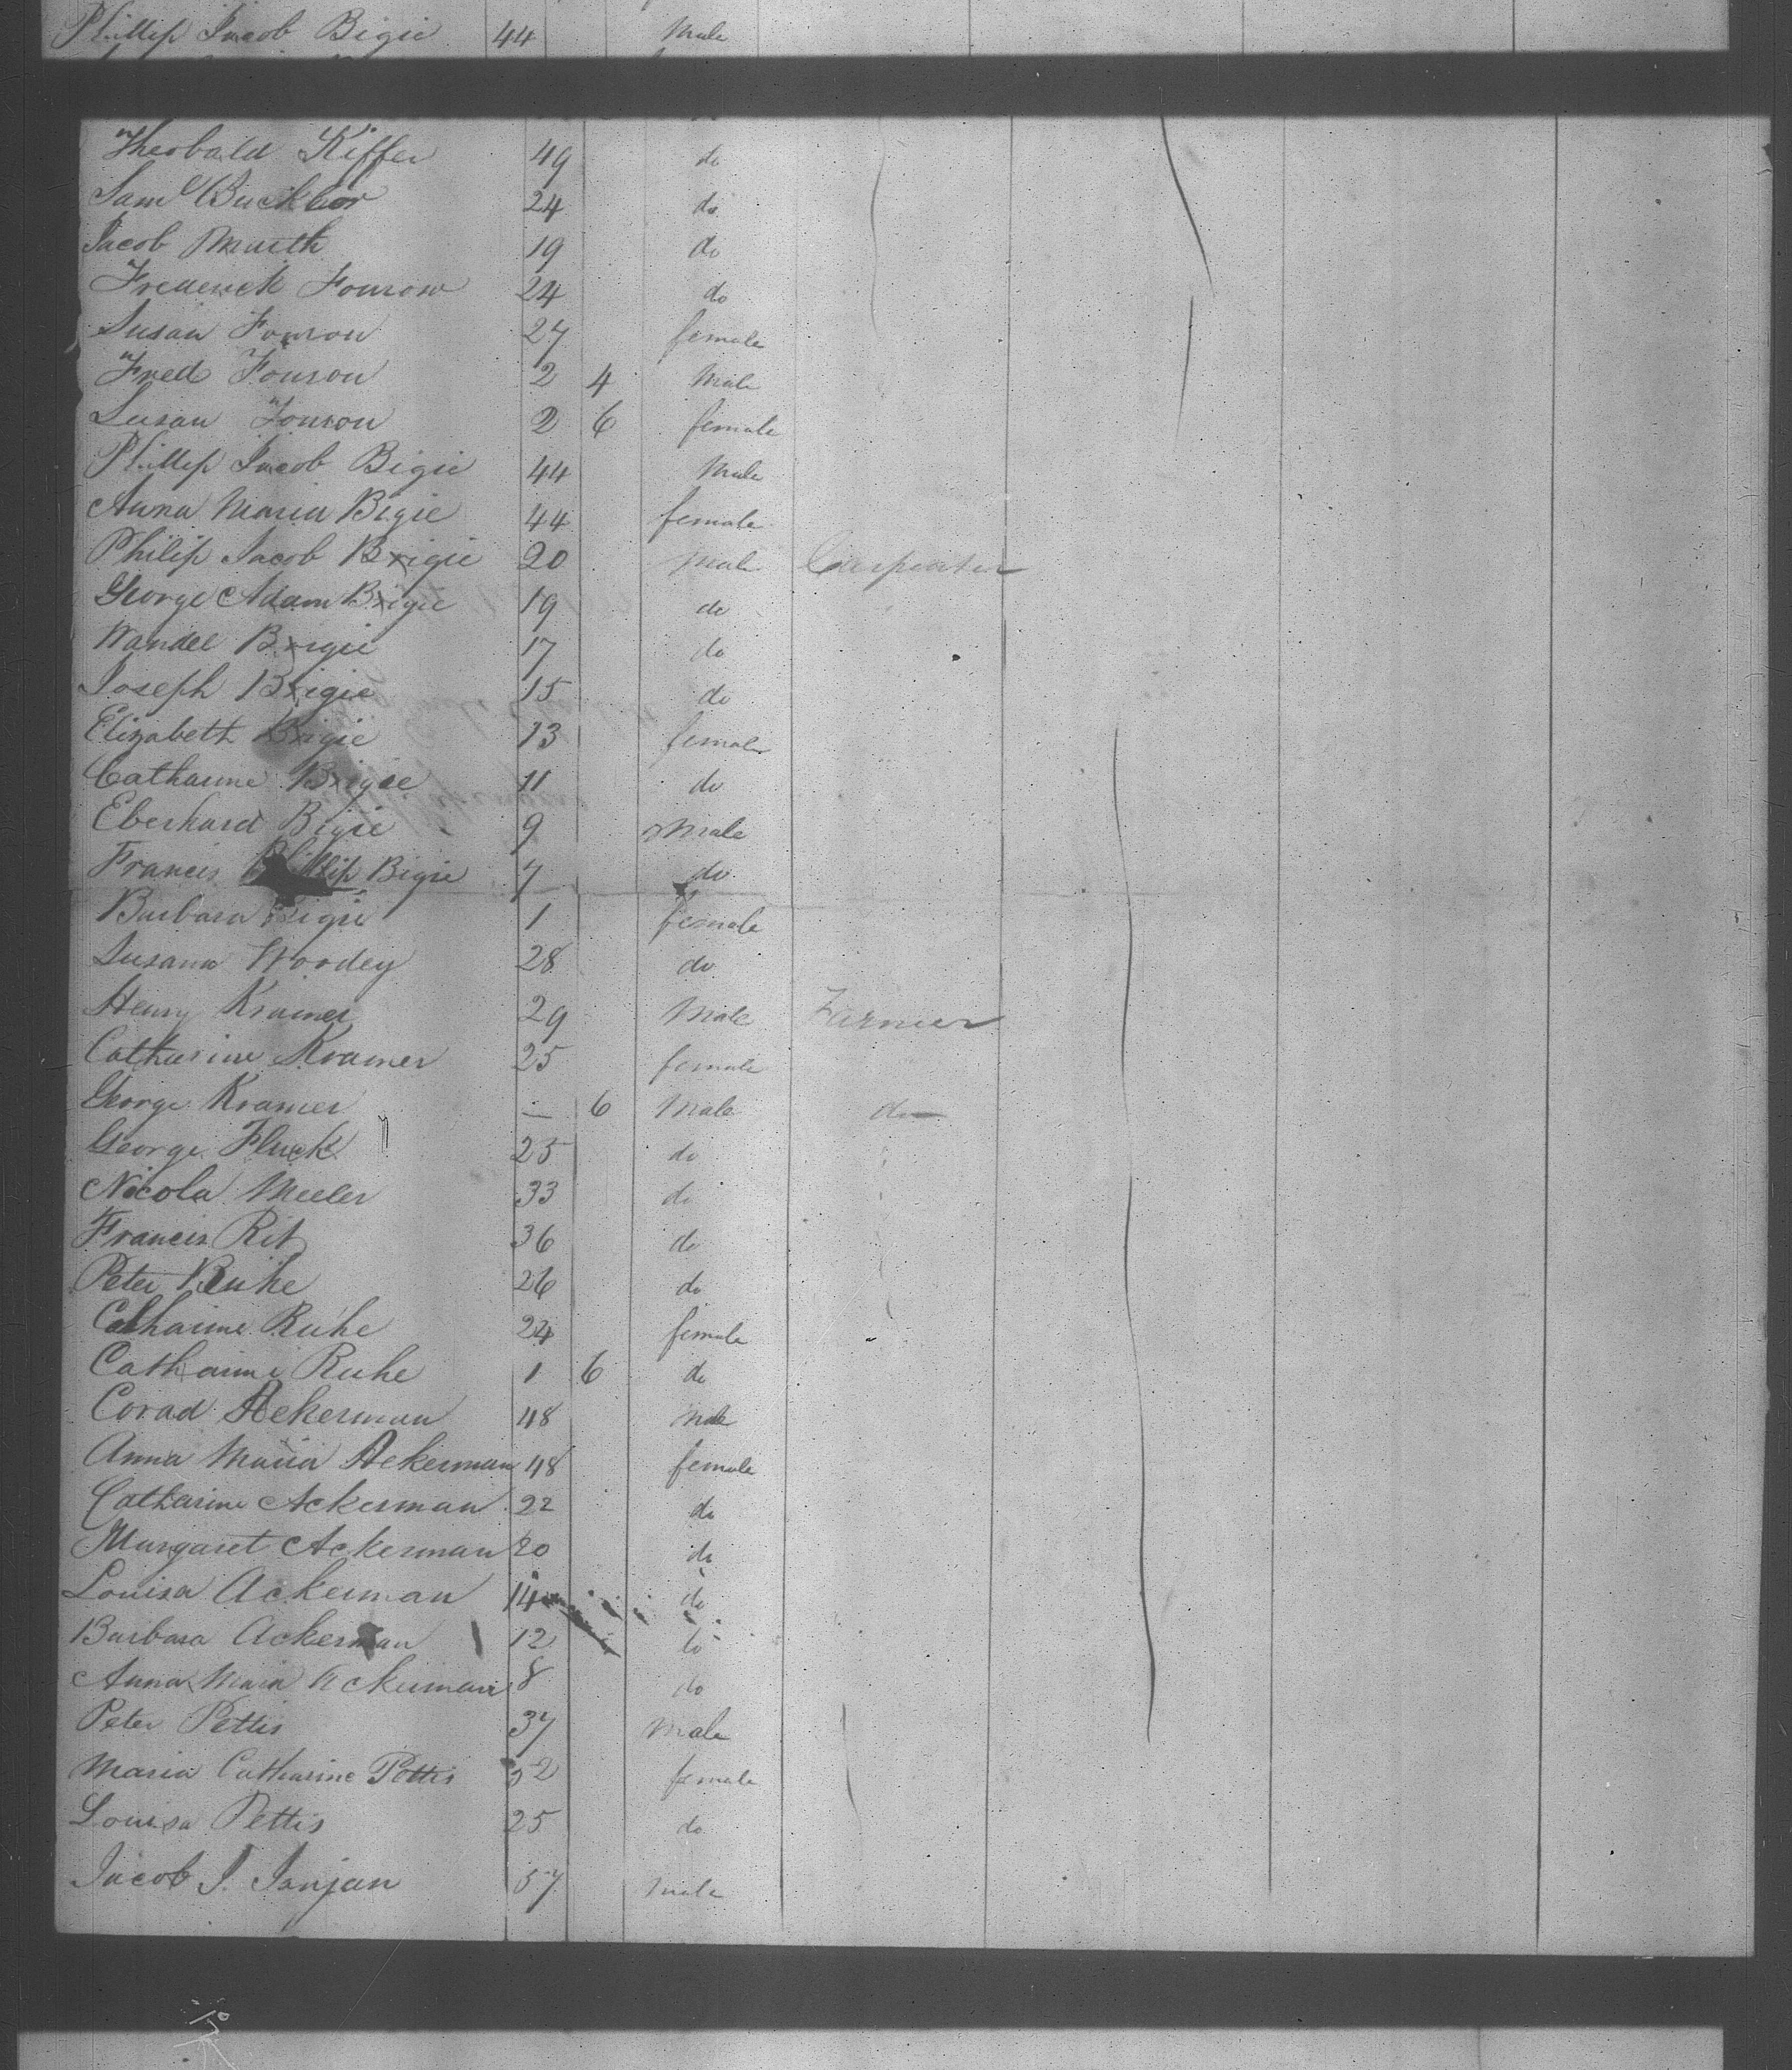 Phillip Jacob Bigie 44 Male
Theobald Kiffer 49 do
Saml Buckbor 24 do
Jacob Muith 19 do
Frederick Fouron 24 do
Susan Fouron 27 female
Fred Fouron 2 4 Male
Susan Fouron 2 6 female
Phillip Jacob Bigie 44 Male
Anna Maria Bigie 44 female
Philip Jacob Bigie 20 Male Carpenter
George Adam Bigie 19 do
Wandel Bigie 17 do
Joseph Bigie 15 do
Elizabeth Bigie 13 female
Catharine Bigie 11 do
Eberhard Bigie 9 Male
Francis Phillip Bigie 7 do
Barbara Bigie 1 female
Susana Woodey 28 do
Henry Kramer 29 Male Farmer
Catharine Kramer 25 female
George Kramer — 6 Male do
George Fluck 25 do
Nicola Meeler 33 do
Francis Rit 36 do
Peter Ruhe 26 do
Catharine Ruhe 24 female
Catharine Ruhe 1 6 do
Corad Ackerman 48 Male
Anna Maria Ackerman 48 female
Catharine Ackerman 22 do
Margaret Ackerman 20 do
Louisa Ackerman 14 do
Barbara Ackerman 12 do
Anna Maria Ackerman 8 do
Peter Pettis 37 Male
Maria Catharine Pettis 32 female
Louisa Pettis 25 do
Jacob J. Janjan 57 Male